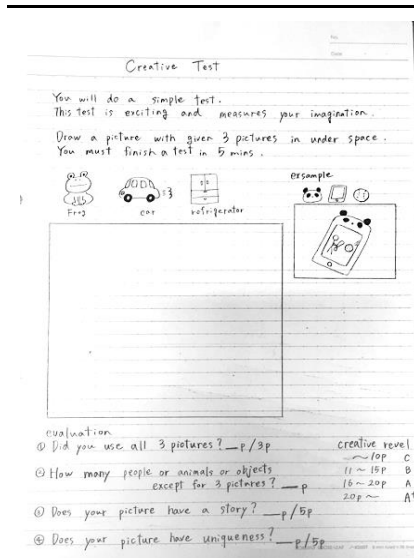 No.
Date
Creative Test
You will do a simple test.
This test is exciting and measures your imagination.
Draw a picture with given 3 pictures in under space.
You must finish a test in 5 mins.
Frog
car
refrigerator
ersample
evaluation
① Did you use all 3 piotures? _p/3p
② How many people or animals or objects
except for 3 pictures? _p
③ Does your picture have a story? _p/5p
④ Does your picture have uniqueness? _p/5p
creative revel
~10p C
11~15p B
16~20p A
20p~ A+